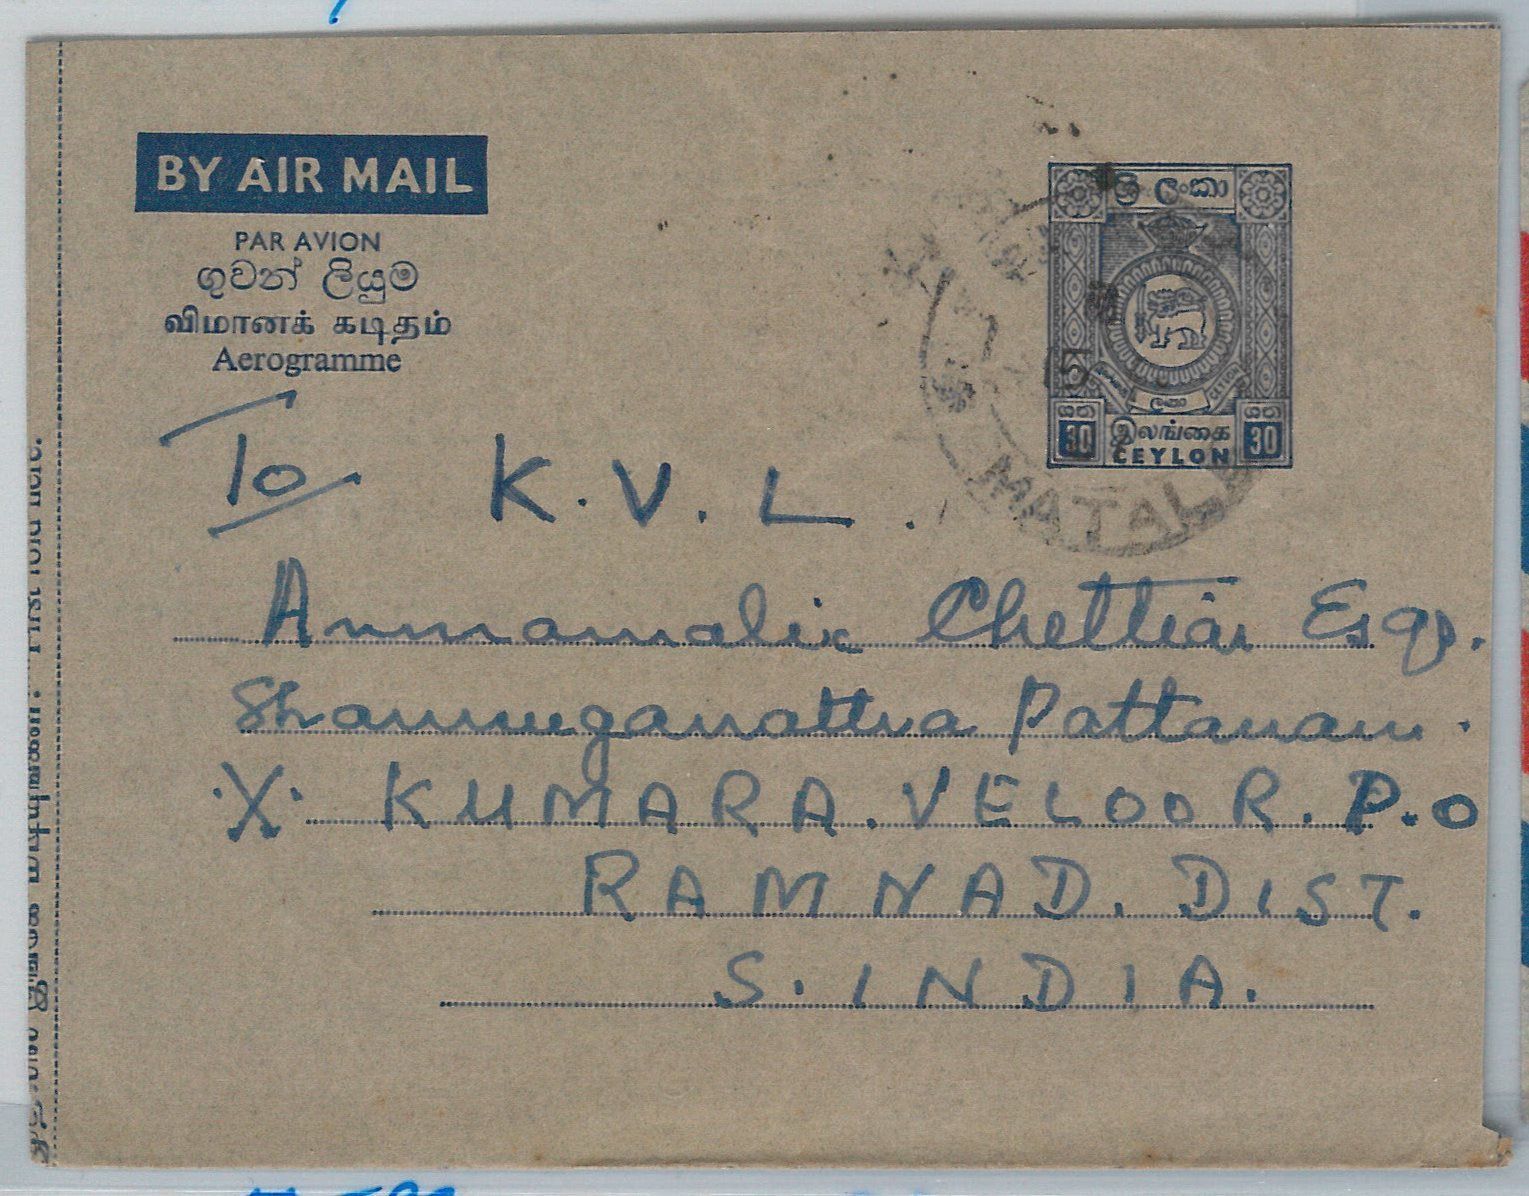 BY AIR MAIL
PAR AVION
ගුවන් ලියුම
விமானக் கடிதம்
Aerogramme
ශ්‍රී ලංකා
ලංකා
30 இலங்கை 30
CEYLON
MATALE
15
To. K. V. L.
Annamalix Chettiar Esqr.
Shanmuganatha Pattanam.
X KUMARA. VELOOR. P.O
RAMNAD. DIST.
S. INDIA.